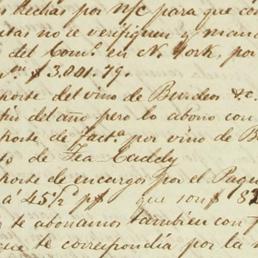 hechas por n/c para que co
tas no se verifiquen y mand
del Com.º en N. York, por
$ 3,001.79.
porte del vino de Burdeos &.c.
tio del año pero lo abono con
porte de fact.a por vino de B
to de Tea Caddy
porte de encargos por el Paqu
á 45½ p$ que son $ 8
te abonamos tambien con
que te correspondía por la